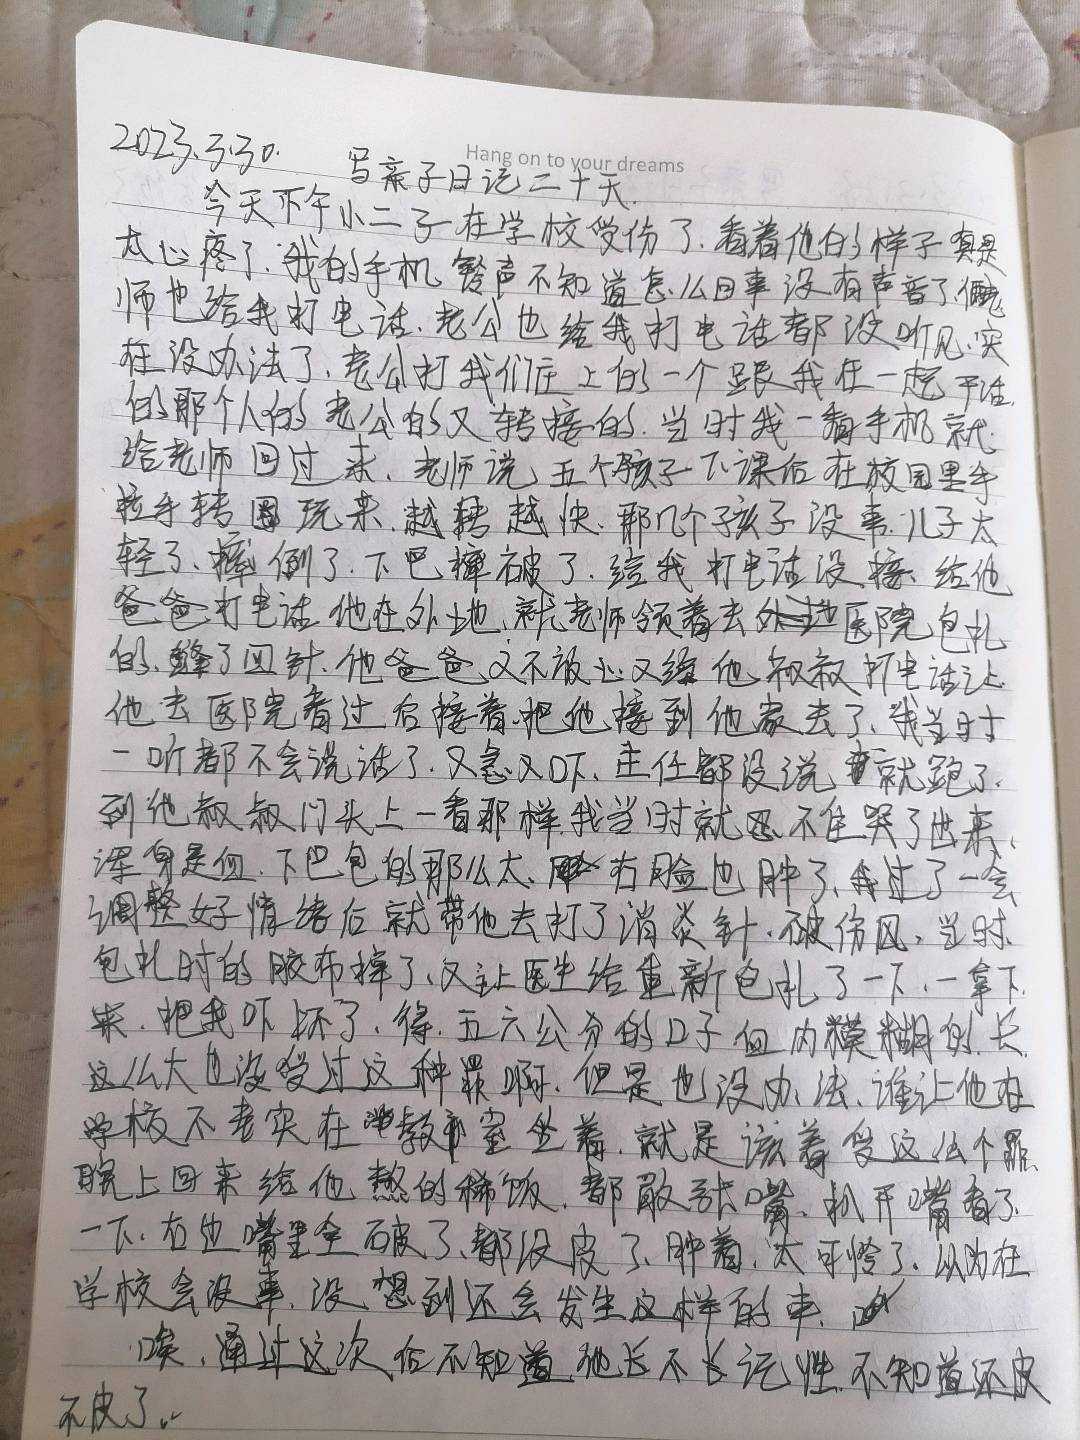 Hang on to your dreams
2023.3.30. 写亲子日记二十天.
今天下午小二子在学校受伤了.看着他的样子真是
太心疼了.我的手机铃声不知道怎么回事没有声音了,
师也给我打电话.老公也给我打电话都没听见.实
在没办法了,老公打我们庄上的一个跟我在一起干活
的那个人的老公的又转接的.当时我一看手机就
给老师回过来.老师说,五个孩子下课后在校园里手
拉手转圈玩来.越转越快.那几个孩子没事.儿子太
轻了.摔倒了.下巴摔破了.给我打电话没接.给他
爸爸打电话他在外地,就老师领着去医院包扎
的.缝了四针.他爸爸又不放心又给他叔叔打电话让
他去医院看过后接着.把他接到他家去了.我当时
一听都不会说话了.又急又吓.主任都没说就跑了.
到他叔叔门头上一看那样.我当时就忍不住哭了出来.
浑身是血.下巴包的那么大.右脸也肿了.我过了一会
调整好情绪后就带他去打了消炎针.破伤风.当时
包扎时的胶布掉了.又让医生给重新包扎了一下.一拿下
来.把我吓坏了.得.五六公分的口子血肉模糊的.长
这么大也没受过这种罪啊.但是也没办法.谁让他在
学校不老实在教室坐着.就是该着受这么个罪.
晚上回来给他熬的稀饭.都敢张嘴.扒开嘴看了
一下.右边嘴里全破了.都没皮了.肿着.太可怜了.以为在
学校会没事.没想到还会发生这样的事.
唉.通过这次后不知道他长不长记性.不知道还皮
不皮了..